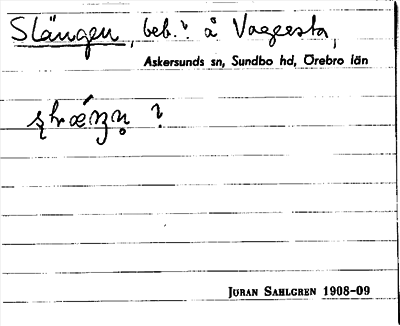 Slängen, beb.? å Vageesta,
Askersunds sn, Sundbo hd, Örebro län
?
JÖRAN SAHLGREN 1908-09